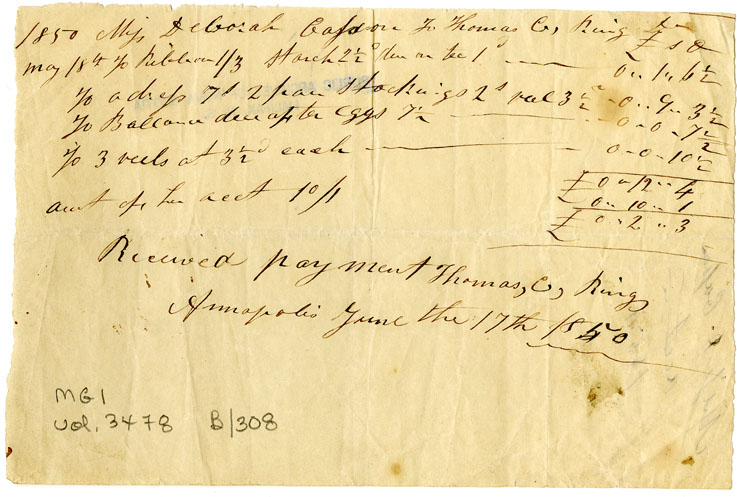 1850 Miss Deborah To Thomas C, Ring £ s d
May 18th To Ribbon 1/3 Starch 2½d due on tea 1d 0 " 1 " 6½
To a dress 7s 2 pair Stockings 2s reel 3½d 0 " 9 " 3½
To Ballance due after Eggs 7½ 0 - 0 - 7½
To 3 reels at 3½d each 0 - 0 - 10½
£ 0 " 12 " 4
amt of her acct 10/1 0 " 10 " 1
£ 0 " 2 " 3
Received payment Thomas, C, Ring
Annapolis June the 17th 1850
MG1
vol. 3478 B/308